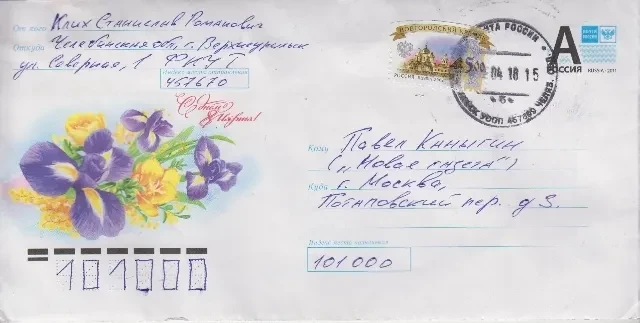 От кого Клих Станислав Романович
Откуда Челябинская обл, г. Верхнеуральск
ул. Северная, 1 ФКУТ
Индекс места отправления
457670
С днём
8 Марта!
ПОЧТА РОССИИ
04 10 15
А
РОССИЯ
RUSSIA • 2011
Кому Павел Каныгин
(„Новая газета“)
Куда г. Москва,
Потаповский пер. д 3.
Индекс места назначения
101000
101000